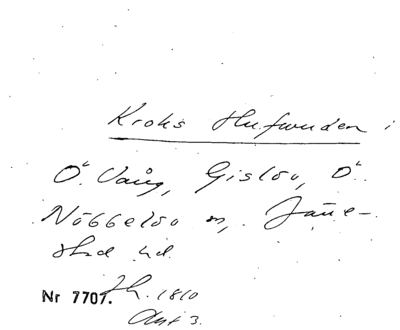 Kroks Hufvuden i
Ö. Vång, Gislöv, Ö.
Nöbbelöv m, Järre-
stad hd.
Nr 7707. Jh. 1810
Akt 3.